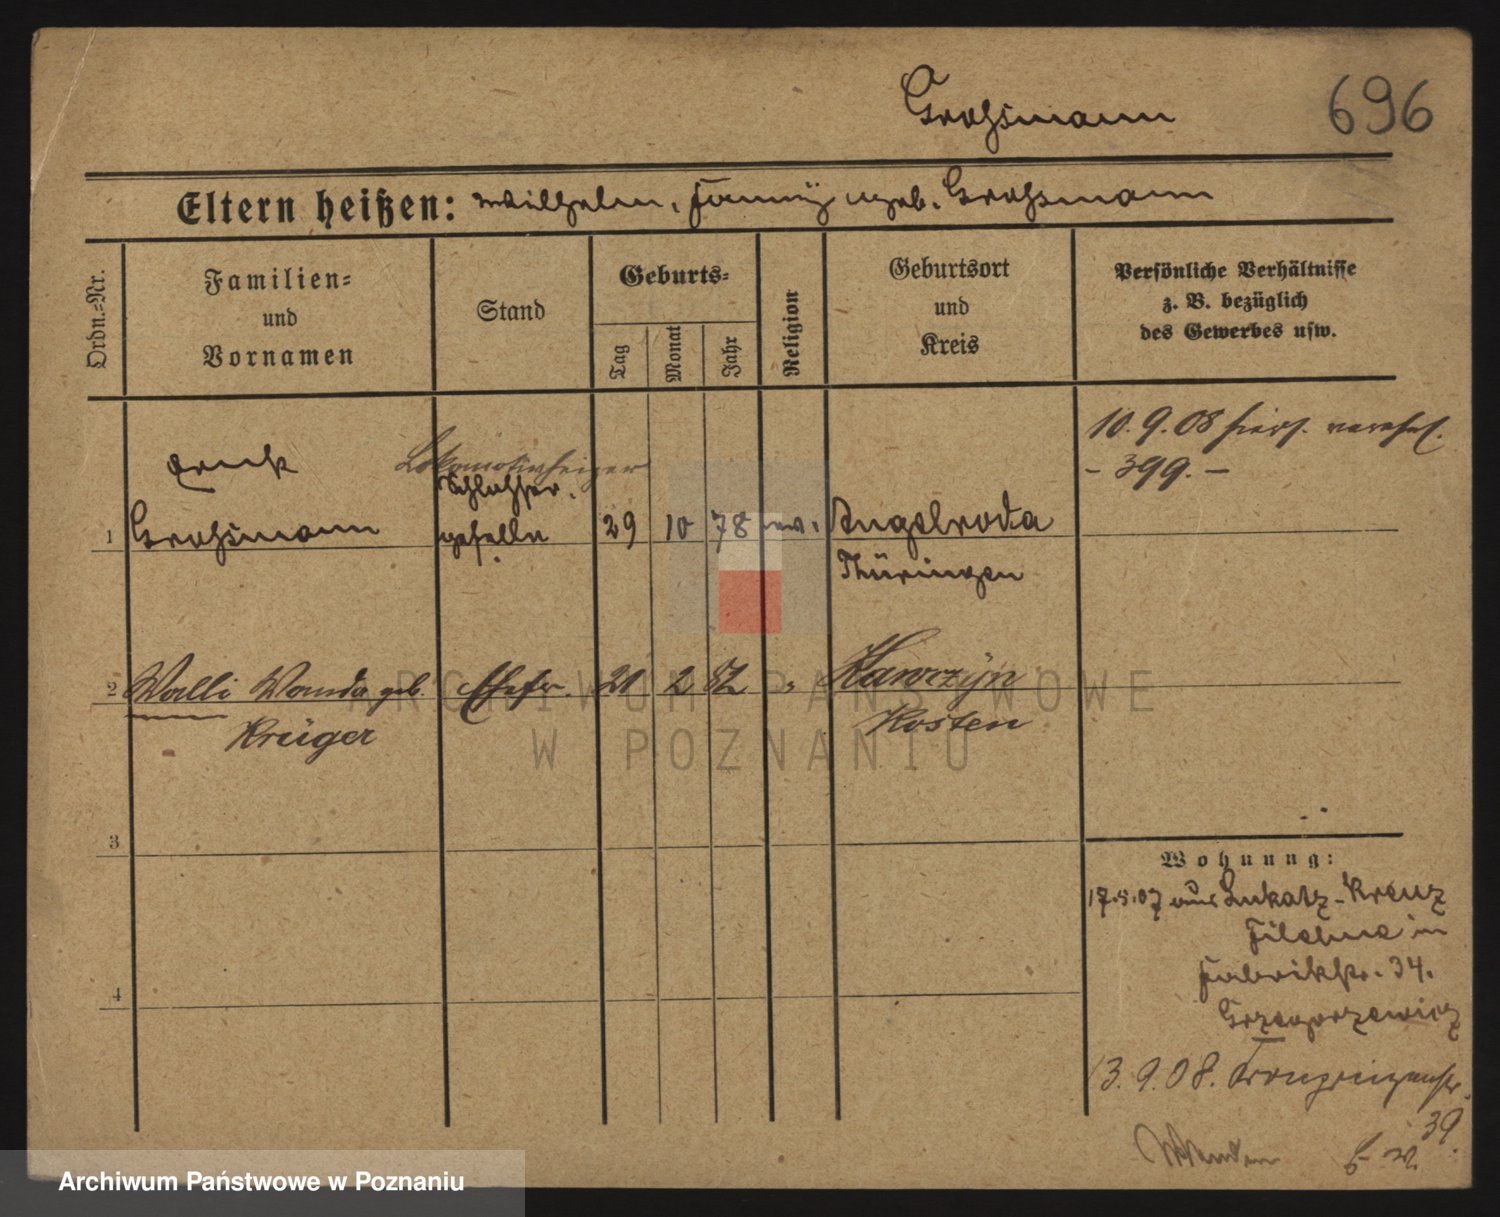 Großmann 696
Eltern heißen: Wilhelm, Fanny geb. Großmann
Ordn.=Nr.
Familien=
und
Vornamen
Stand
Geburts=
Tag
Monat
Jahr
Religion
Geburtsort
und
Kreis
Persönliche Verhältnisse
z. B. bezüglich
des Gewerbes usw.
10. 9. 08 hiers. verehel.
- 399. -
Erich Lokomotivheizer
Schlosser.
1 Großmann geselle 29 10 78 ev. Angelroda
Thüringen
2 Walli Wanda geb. Ehefr. 21 2 82 " Kawczyn
Krüger Kosten
3
Wohnung:
17.5.07 aus Lukatz-Kreuz
Filehne in
Fabrikstr. 34.
4
Grzegorzewicz
13. 9. 08. Kronprinzenstr.
39.
Wenden
ARCHIWUM PAŃSTWOWE
W POZNANIU
Archiwum Państwowe w Poznaniu